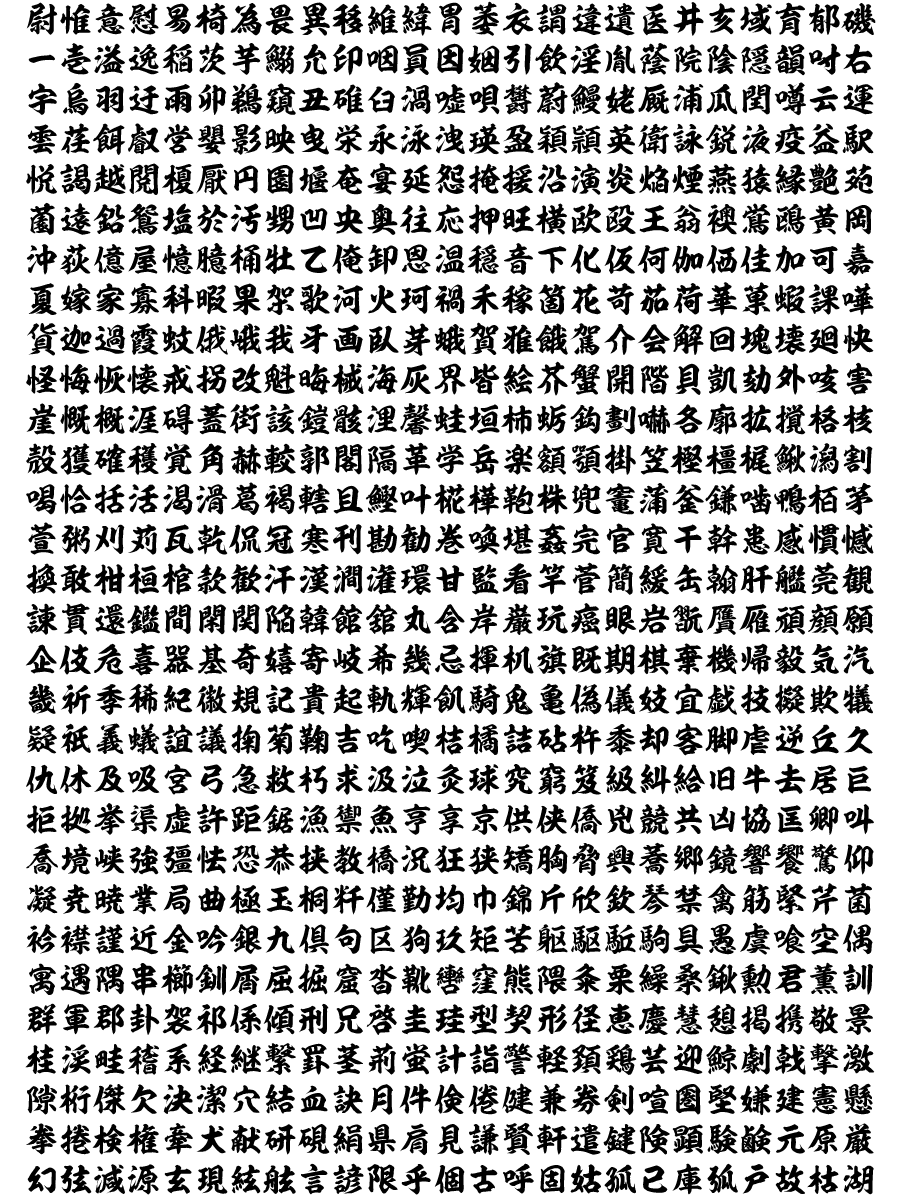 尉惟意慰易椅為畏異移維緯胃萎衣謂違遺医井亥域育郁磯
一壱溢逸稲茨芋鰯允印咽員因姻引飲淫胤蔭院陰隠韻吋右
宇烏羽迂雨卯鵜窺丑碓臼渦嘘唄欝蔚鰻姥厩浦瓜閏噂云運
雲荏餌叡営嬰影映曳栄永泳洩瑛盈穎頴英衛詠鋭液疫益駅
悦謁越閲榎厭円園堰奄宴延怨掩援沿演炎焔煙燕猿縁艶苑
薗遠鉛鴛塩於汚甥凹央奥往応押旺横欧殴王翁襖鴬鴎黄岡
沖荻億屋憶臆桶牡乙俺卸恩温穏音下化仮何伽価佳加可嘉
夏嫁家寡科暇果架歌河火珂禍禾稼箇花苛茄荷華菓蝦課嘩
貨迦過霞蚊俄峨我牙画臥芽蛾賀雅餓駕介会解回塊壊廻快
怪悔恢懐戒拐改魁晦械海灰界皆絵芥蟹開階貝凱劾外咳害
崖慨概涯碍蓋街該鎧骸浬馨蛙垣柿蛎鈎劃嚇各廓拡撹格核
殻獲確穫覚角赫較郭閣隔革学岳楽額顎掛笠樫橿梶鰍潟割
喝恰括活渇滑葛褐轄且鰹叶椛樺鞄株兜竃蒲釜鎌噛鴨栢茅
萱粥刈苅瓦乾侃冠寒刊勘勧巻喚堪姦完官寛干幹患感慣憾
換敢柑桓棺款歓汗漢澗潅環甘監看竿菅簡緩缶翰肝艦莞観
諌貫還鑑間閑関陥韓館舘丸含岸巌玩癌眼岩翫贋雁頑顔願
企伎危喜器基奇嬉寄岐希幾忌揮机旗既期棋棄機帰毅気汽
畿祈季稀紀徽規記貴起軌輝飢騎鬼亀偽儀妓宜戯技擬欺犠
疑祇義蟻誼議掬菊鞠吉吃喫桔橘詰砧杵黍却客脚虐逆丘久
仇休及吸宮弓急救朽求汲泣灸球究窮笈級糾給旧牛去居巨
拒拠挙渠虚許距鋸漁禦魚亨享京供侠僑兇競共凶協匡卿叫
喬境峡強彊怯恐恭挟教橋況狂狭矯胸脅興蕎郷鏡響饗驚仰
凝尭暁業局曲極玉桐粁僅勤均巾錦斤欣欽琴禁禽筋緊芹菌
衿襟謹近金吟銀九倶句区狗玖矩苦躯駆駈駒具愚虞喰空偶
寓遇隅串櫛釧屑屈掘窟沓靴轡窪熊隈粂栗繰桑鍬勲君薫訓
群軍郡卦袈祁係傾刑兄啓圭珪型契形径恵慶慧憩掲携敬景
桂渓畦稽系経継繋罫茎荊蛍計詣警軽頚鶏芸迎鯨劇戟撃激
隙桁傑欠決潔穴結血訣月件倹倦健兼券剣喧圏堅嫌建憲懸
拳捲検権牽犬献研硯絹県肩見謙賢軒遣鍵険顕験鹸元原厳
幻弦減源玄現絃舷言諺限乎個古呼固姑孤己庫弧戸故枯湖